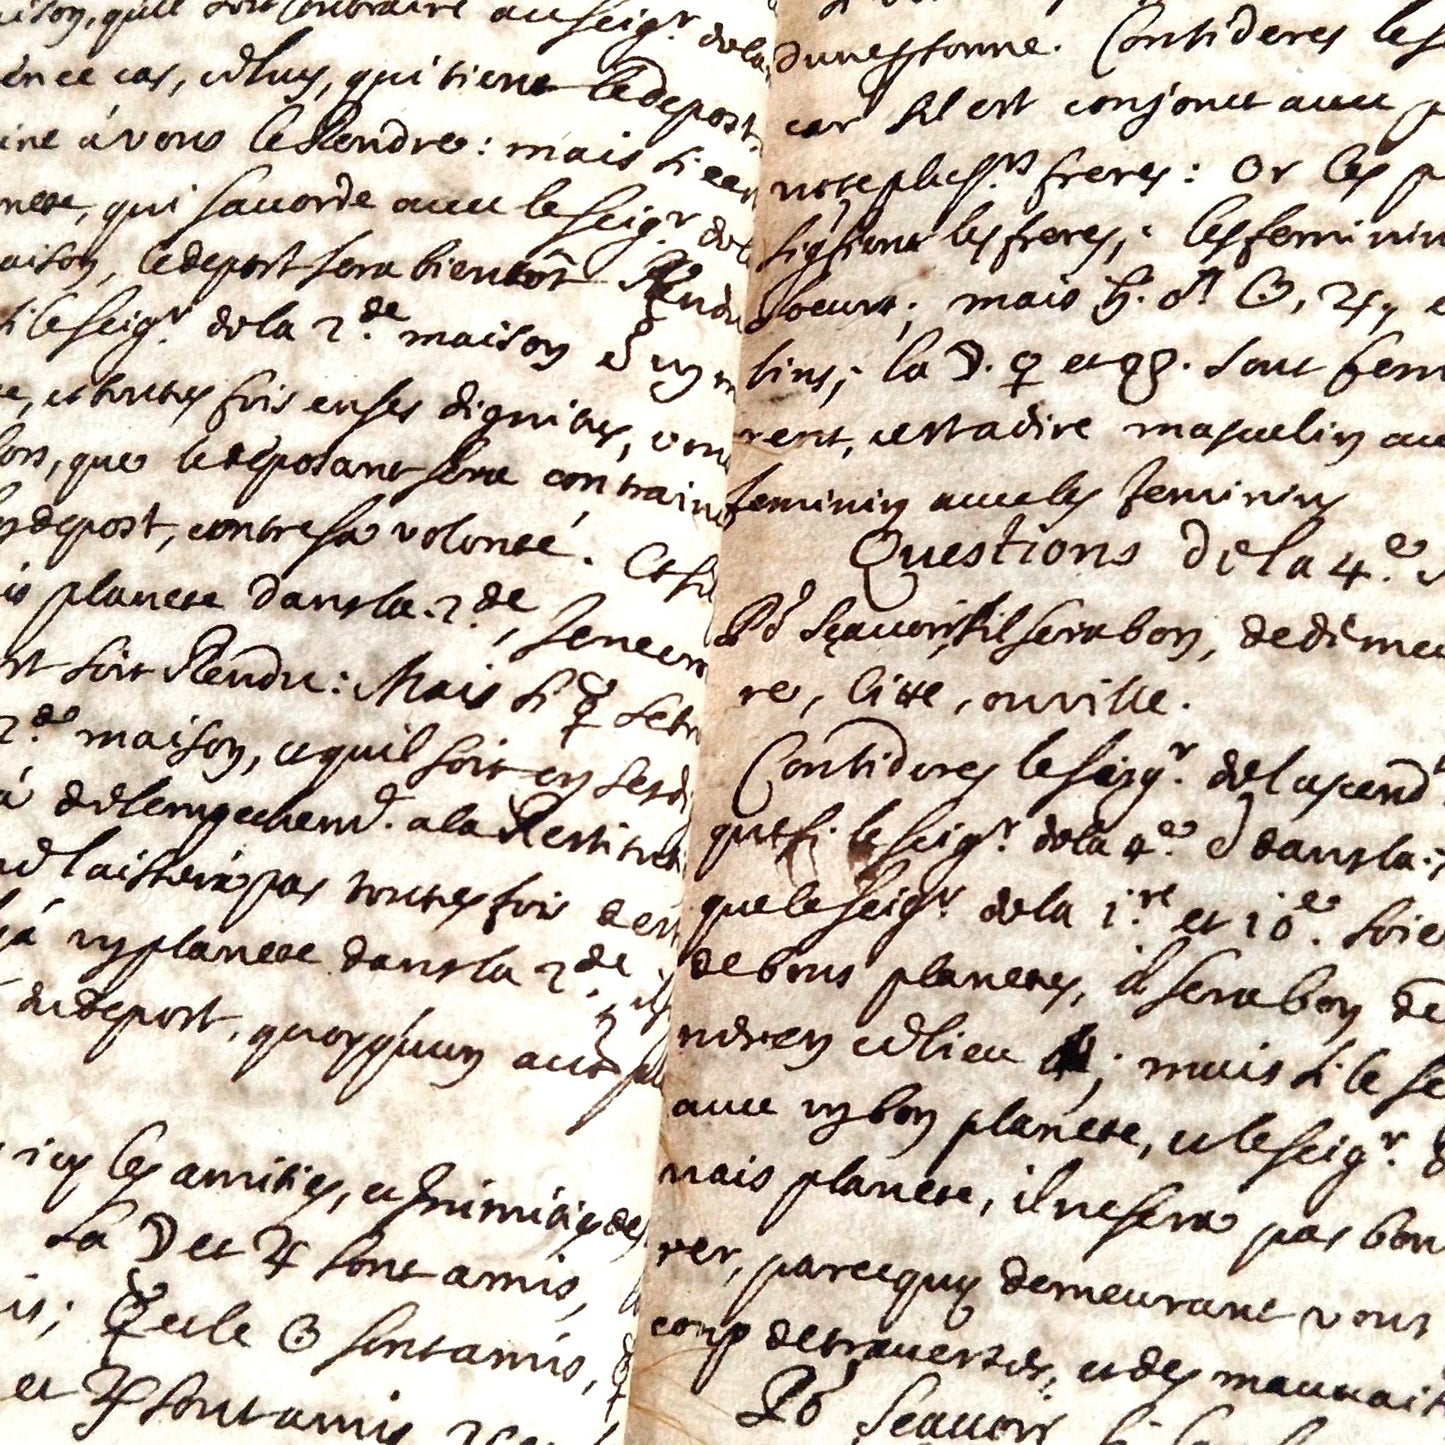 qu'il soit contraire au seigr. de la
en ce cas, celuy, qui tient le depost
à vous le Rendre: mais si
qui s'acorde avec le seigr. de
le depost sera bientôt Rendu
si le seigr. de la 2.de maison est un
et toutes fois en ses dignites, vou
que le deposant sera contraint
depost, contre sa volonté. Et si
planete dans la 2.de, Je ne cro
soit Rendu: Mais si ☿ se tr
2.de maison, et quil soit en ses d
à de l'empechemt. a la Restitut
laissera pas toutes fois
un planete dans la 2.de, il
du deport, quoyqu'un aut
icy les amities, et Inimities des
La ☽ et ♃ sont amis,
☿ et le ☉ sont amis, ♀
et ♃ sont amis
d'une personne. Consideres le s
car s'il est conjonct avec p
freres: Or les p
les freres,; les feminin
soeurs; mais ♄. ♂. ☉, ♃,
lins,; la ☽. ♀ et sont fem
rent, cest a dire masculin au
feminin avec les feminins
Questions de la 4.e
Po Sçauoir, s'il sera bon, de deme
re, ou ville.
Consideres le seigr. de l'ascend
que si le seigr. de la 4.e est dans la
que le seigr. de la 1.re et 10.e. soie
de bons planetes, il sera bon de
en ce lieu ; mais si le se
avec un bon planete, et le seigr.
vais planete, il ne sera pas bon
rer, parce qu'y demeurant vous
coup de traverses, et de mauvai
Po Sçauoir si